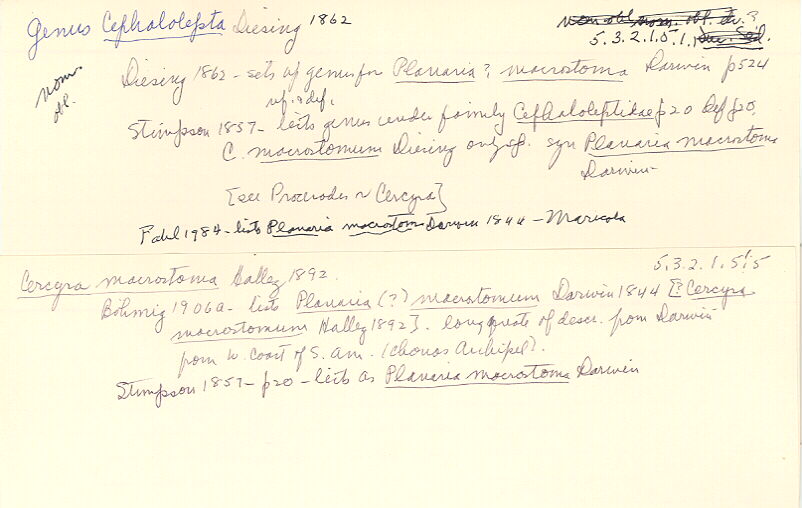 Genus Cephalolepta Diesing 1862
5.3.2.1.5.1.
nom. obl.
Diesing 1862 - sets up genus for Planaria? macrostoma Darwin p524
w. def.
Stimpson 1857 - lists genus under family Cephaloleptidae p20 Def p20,
C. macrostomum Diesing only sp. syn Planaria macrostoma
Darwin
[see Procerodes ~ Cercyra]
1984 - lists Planaria macrostoma Darwin 1844 - Maricola
Cercyra macrostoma Hallez 1892. 5.3.2.1.5.5
Böhmig 1906a - lists Planaria (?) macrostomum Darwin 1844 [? Cercyra
macrostomum Hallez 1892]. long quote of descr. from Darwin
from w. coast of S. Am. (Chonos Archipel).
Stimpson 1857 - p20 - lists as Planaria macrostoma Darwin